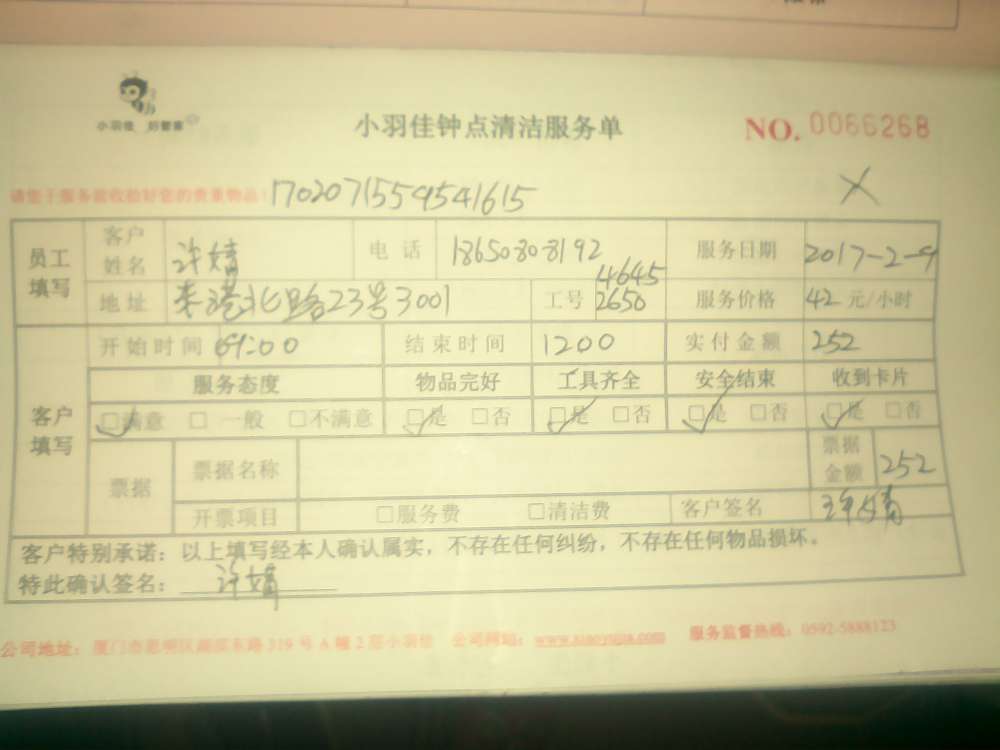 小羽佳 好管家
小羽佳钟点清洁服务单
NO. 0066268
请您于服务前收拾好您的贵重物品!
1702071559541615
X
员工填写
客户姓名 许婧 电话 18650808192 服务日期 2017-2-9
地址 东港北路23号3001 工号 4645 2650 服务价格 42 元/小时
客户填写
开始时间 09:00 结束时间 1200 实付金额 252
服务态度 物品完好 工具齐全 安全结束 收到卡片
☑满意 □一般 □不满意 ☑是 □否 ☑是 □否 ☑是 □否 ☑是 □否
票据 票据名称 票据金额 252
开票项目 □服务费 □清洁费 客户签名 许婧
客户特别承诺：以上填写经本人确认属实，不存在任何纠纷，不存在任何物品损坏。
特此确认签名： 许婧
公司地址：厦门市思明区湖滨东路319号A幢2层小羽佳 公司网站： 服务监督热线：0592-5888123